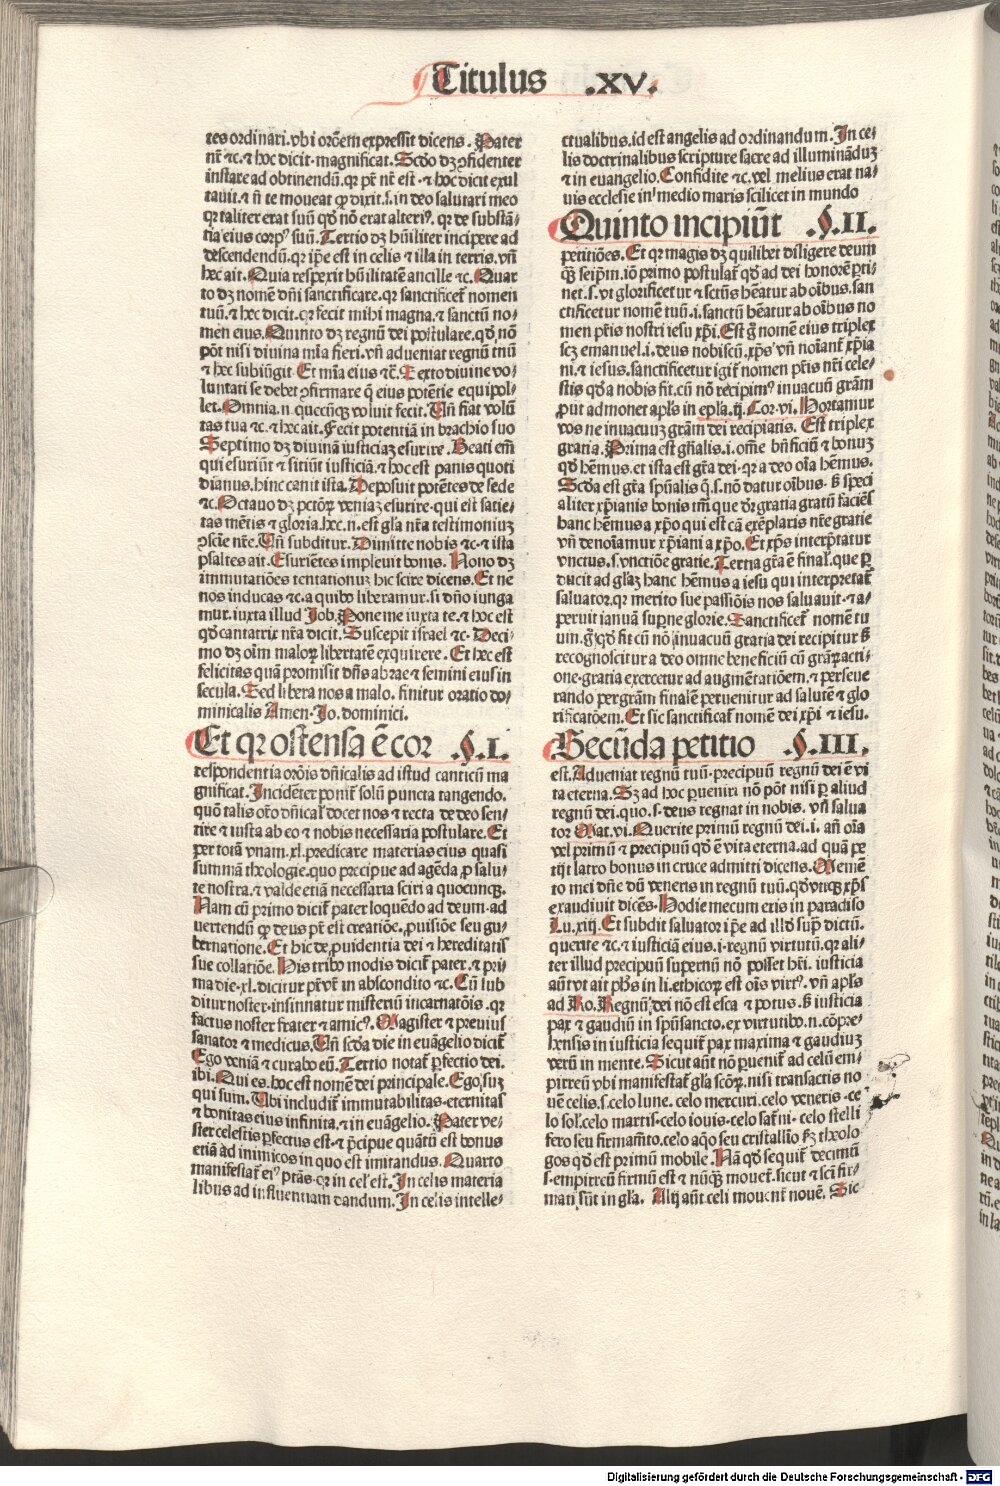 Titulus .XV.
tes ordinari. vbi orõem expressit dicens. Pater
nr̃ ⁊c. ⁊ hoc dicit. magnificat. Scďo dꝫ ↄfidenter
instare ad obtinendũ. qꝛ pr̃ nr̃ est. ⁊ hoc dicit exul
tauit. ⁊ ñ te moueat qꝛ dixit. s. in deo salutari meo
qꝛ taliter erat suũ qďo nõ erat alteriꝰ. qꝛ de substã⸗
tia eius corpꝰ suũ. Tertio dꝫ hũiliter incipere ad
descendendũ. qꝛ ip̃e est in celis ⁊ illa in terris. vñ
hec ait. Quia respexit hũilitatẽ ancille ⁊c. Quar
to dꝫ nomẽ dñi sanctificare. qꝛ sanctificet̃ nomen
tuũ. ⁊ hec dicit. qꝛ fecit mihi magna. ⁊ sanctũ no⸗
men eius. Quinto dꝫ regnũ dei postulare. qďo nõ
põt nisi diuina mĩa fieri. vñ adueniat regnũ tuũ
⁊ hec subiũgit. Et mĩa eius ⁊c. Sexto diuine vo⸗
luntati se debet ↄfirmare q̃ eius potẽtie equipol⸗
let. Omnia. n. quecũqꝫ voluit fecit. Vñ fiat volũ
tas tua ⁊c. ⁊ hec ait. Fecit potentiã in brachio suo
Septimo dꝫ diuinã iusticiaꝫ esurire. Beati em̃
qui esuriũt ⁊ sitiũt iusticiã. ⁊ hoc est panis quoti
dianus. hinc canit ista. Deposuit potẽtes de sede
⁊c. Octauo dꝫ pctõꝝ veniaꝫ esurire. qui eit̃ satie⸗
tas mẽtis ⁊ gloria. hec. n. est gl̃a nr̃a testimoniuꝫ
ↄsciẽ nr̃e. Vñ subditur. Dimitte nobis ⁊c. ⁊ ista
psaltes ait. Esuriẽtes impleuit bonis. Nono dꝫ
immutatiões tentationuꝫ hic scire dicens. Et ne
nos inducas ⁊c. a quibꝰ liberamur. si dño iunga
mur. iuxta illud Job. Pone me iuxta te. ⁊ hoc est
qďo cantatrix nr̃a dicit. Suscepit israel ⁊c. Deci⸗
mo dꝫ oĩm maloꝝ libertatẽ exquirere. Et hec est
felicitas quã promisit dñs abrae ⁊ semini eius in
secula. Sed libera nos a malo. finitur oratio do⸗
minicalis Amen. Jo. dominici.
Et qꝛ ostensa ẽ cor .§.I.
respondentia orõis dñicalis ad istud canticũ ma
gnificat. Incidẽter ponit̃ solũ puncta tangendo.
quõ talis orõ dñical̃ docet nos ⁊ recta de deo sen⸗
tire ⁊ iusta ab eo ⁊ nobis necessaria postulare. Et
per totã vnam. xl. predicare materias eius quasi
summã theologie. quo precipue ad agẽda ꝓ salu⸗
te nostra. ⁊ valde etiã necessaria sciri a quocunqꝫ.
Nam cũ primo dicit̃ pater loquẽdo ad deum. ad
uertendũ qꝛ deus pr̃ est creatiõe. ꝓuisiõe seu gu⸗
bernatione. Et hic de ꝓuidentia dei ⁊ hereditatis
sue collatiõe. His tribꝰ modis dicit̃ pater. ⁊ pri⸗
ma die. xl. dicitur pr̃ vt̃ in abscondito ⁊c. Cũ sub
ditur noster. insinnatur misteriũ incarnatõis. qꝛ
factus noster frater ⁊ amicꝰ. Magister ⁊ preuius
sanator ⁊ medicus. Vñ scďa die in euãgelio dicit̃
Ego veniã ⁊ curabo eũ. Tertio notat̃ ꝑfectio dei.
ibi. Qui es. hoc est nomẽ dei principale. Ego suꝫ
qui sum. Vbi includit̃ immutabilitas. eternitas
⁊ bonitas eius infinita. ⁊ in euãgelio. Pater ve⸗
ster celestis ꝑfectus est. ⁊ p̃cipue quãtũ est bonus
etiã ad inimicos in quo est imitandus. Quarto
manifestat̃ eiꝰ ptãs. qꝛ in cel̃ est. In celis materia
libus ad influentiam dandum. In celis intelle⸗
ctualibus. id est angelis ad ordinandum. In ce⸗
lis doctrinalibus scripture sacre ad illuminãduꝫ
⁊ in euangelio. Confidite ⁊c. vel melius erat na⸗
uis ecclesie in medio maris scilicet in mundo
Quinto incipiũt .§.II.
petitiões. Et qꝛ magis dꝫ quilibet diligere deum
qꝫ seip̃m. iõ primo postulat̃ qďo ad dei honorẽ ꝑti⸗
net. s. vt glorificetur ⁊ sctũs hẽatur ab oĩbus. san
ctificetur nomẽ tuũ. i. sanctũ hẽatur ab oĩbus no
men pr̃is nostri iesu xp̃i. Est g̃ nomẽ eius triplex
scꝫ emanuel. i. deus nobiscũ. xp̃s vñ noĩant̃ xp̃ia
ni. ⁊ iesus. sanctificetur igit̃ nomẽ pr̃is nr̃i cele⸗
stis qďo a nobis fit. cũ nõ recipimꝰ in uacuũ gr̃am
ꝓut admonet apl̃s in epl̃a. ij. Cor. vi. Hortamur
vos ne in uacuuꝫ gr̃am dei recipiatis. Est triplex
gratia. Prima est gñalis. i. om̃e bñficiũ ⁊ bonuꝫ
qďo hẽmus. ⁊ ista est gr̃a dei. qꝛ a deo oĩa hẽmus.
Scďa est gr̃a spũalis q̃. s. nõ datur oĩbus. sꝫ speci
aliter xp̃ianis bonis tm̃ que dr̃ gratia gratũ faciẽs
hanc hẽmus a xp̃o qui est cã exẽplaris nr̃e gratie
vñ denoĩamur xp̃iani a xp̃o. Et xp̃s interp̃tatur
vnctus. s. vnctiõe gratie. Terna gr̃a ẽ final̃. que ꝑ
ducit ad gl̃aꝫ hanc hẽmus a iesu qui interpretat̃
saluator. qꝛ merito sue passiõis nos saluauit. ⁊ a⸗
peruit ianuã suꝑne glorie. Sanctificet̃ nomẽ tu
um. g̃ qďo fit cũ nõ in uacuũ gratia dei recipitur sꝫ
recognoscitur a deo omne beneficiũ cũ gr̃aꝝ acti⸗
one. gratia exercetur ad augmẽtatiõem. ⁊ perseue
rando per gr̃am finalẽ peruenitur ad salutẽ ⁊ glo
rificatõem. Et sic sanctificat̃ nomẽ dei xp̃i ⁊ iesu.
Secũda petitio .§.III.
est. Adueniat regnũ tuũ. precipuũ regnũ dei ẽ vi
ta eterna. Sꝫ ad hoc ꝑueniri nõ põt nisi ꝑ aliud
regnũ dei. quo. s. deus regnat in nobis. vñ salua
tor Mat. vi. Querite primũ regnũ dei. i. añ oĩa
vel primũ ⁊ precipuũ qďo ẽ vita eterna. ad quã pe
tijt latro bonus in cruce admitti dicens. Memẽ
to mei dñe dũ veneris in regnũ tuũ. qďo vtiqꝫ xp̃s
exaudiuit dicẽs. Hodie mecum eris in paradiso
Lu. xiij. Et subdit saluator ip̃e ad illďo suꝑ dictũ.
querite ⁊c. ⁊ iusticiã eius. i. regnũ virtutũ. qꝛ ali⸗
ter illud precipuũ supernũ nõ posset hr̃i. iusticia
aũt vt ait phs̃ in li. ethicoꝝ est oĩs virtꝰ. vñ apl̃s
ad Ro. Regnũ dei nõ est esca ⁊ potus. sꝫ iusticia
pax ⁊ gaudiũ in spũsancto. ex virtutibꝰ. n. cõpre⸗
hensis in iusticia sequit̃ pax maxima ⁊ gaudiuꝫ
verũ in mente. Sicut aũt nõ ꝑuenit̃ ad celũ em⸗
pirreũ vbi manifestat̃ gl̃a scõꝝ. nisi transactis no
uẽ celis. s. celo lune. celo mercuri. celo veneris. ce
lo sol̃. celo martis. celo iouis. celo sat̃ni. celo stelli
fero seu firmam̃to. celo aq̃o seu cristallio sꝫ theolo
gos qďo est primũ mobile. Nã qďo sequit̃ decimũ
s. empirreũ firmũ est ⁊ nũqꝫ mouet̃. sicut ⁊ scĩ fir⸗
mati sũt in gl̃a. Alij aũt celi mouent̃ nouẽ. Sic
Digitalisierung gefördert durch die Deutsche Forschungsgemeinschaft - DFG